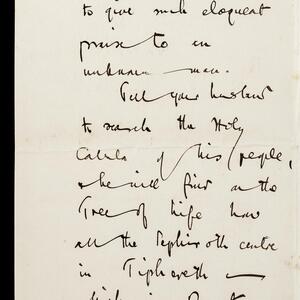 to give such eloquent
praise to an
unknown man.
Tell your husband
to search the Holy
Cabala of his people,
& he will find on the
Tree of Life how
all the Sephiroth centre
in Tiphereth —
which is